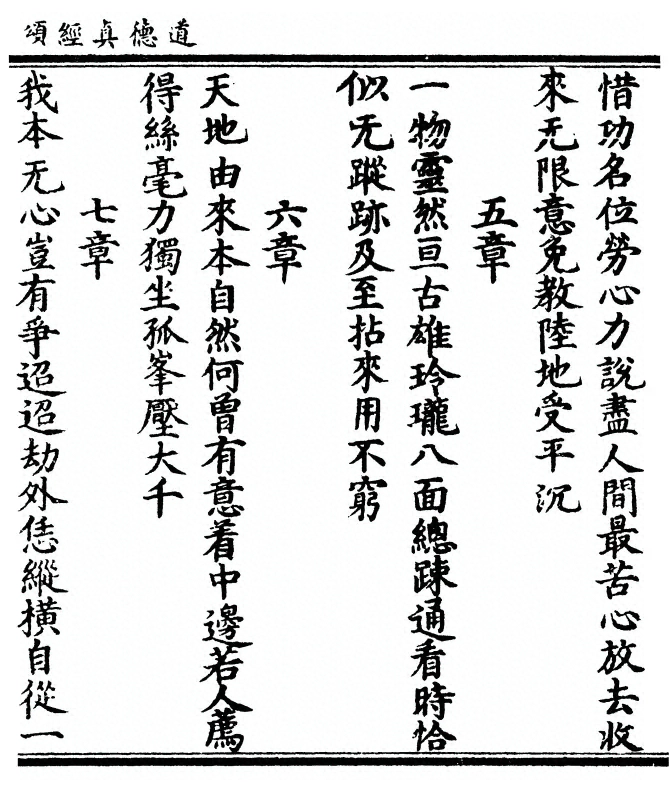 道德真經頌
惜功名位勞心力說盡人間最苦心放去收
來无限意免教陸地受平沉
五章
一物靈然亘古雄玲瓏八面總踈通看時恰
似无蹤跡及至拈來用不窮
六章
天地由來本自然何曾有意着中邊若人薦
得絲毫力獨坐孤峯壓大千
七章
我本无心豈有爭迢迢劫外恁縱橫自從一